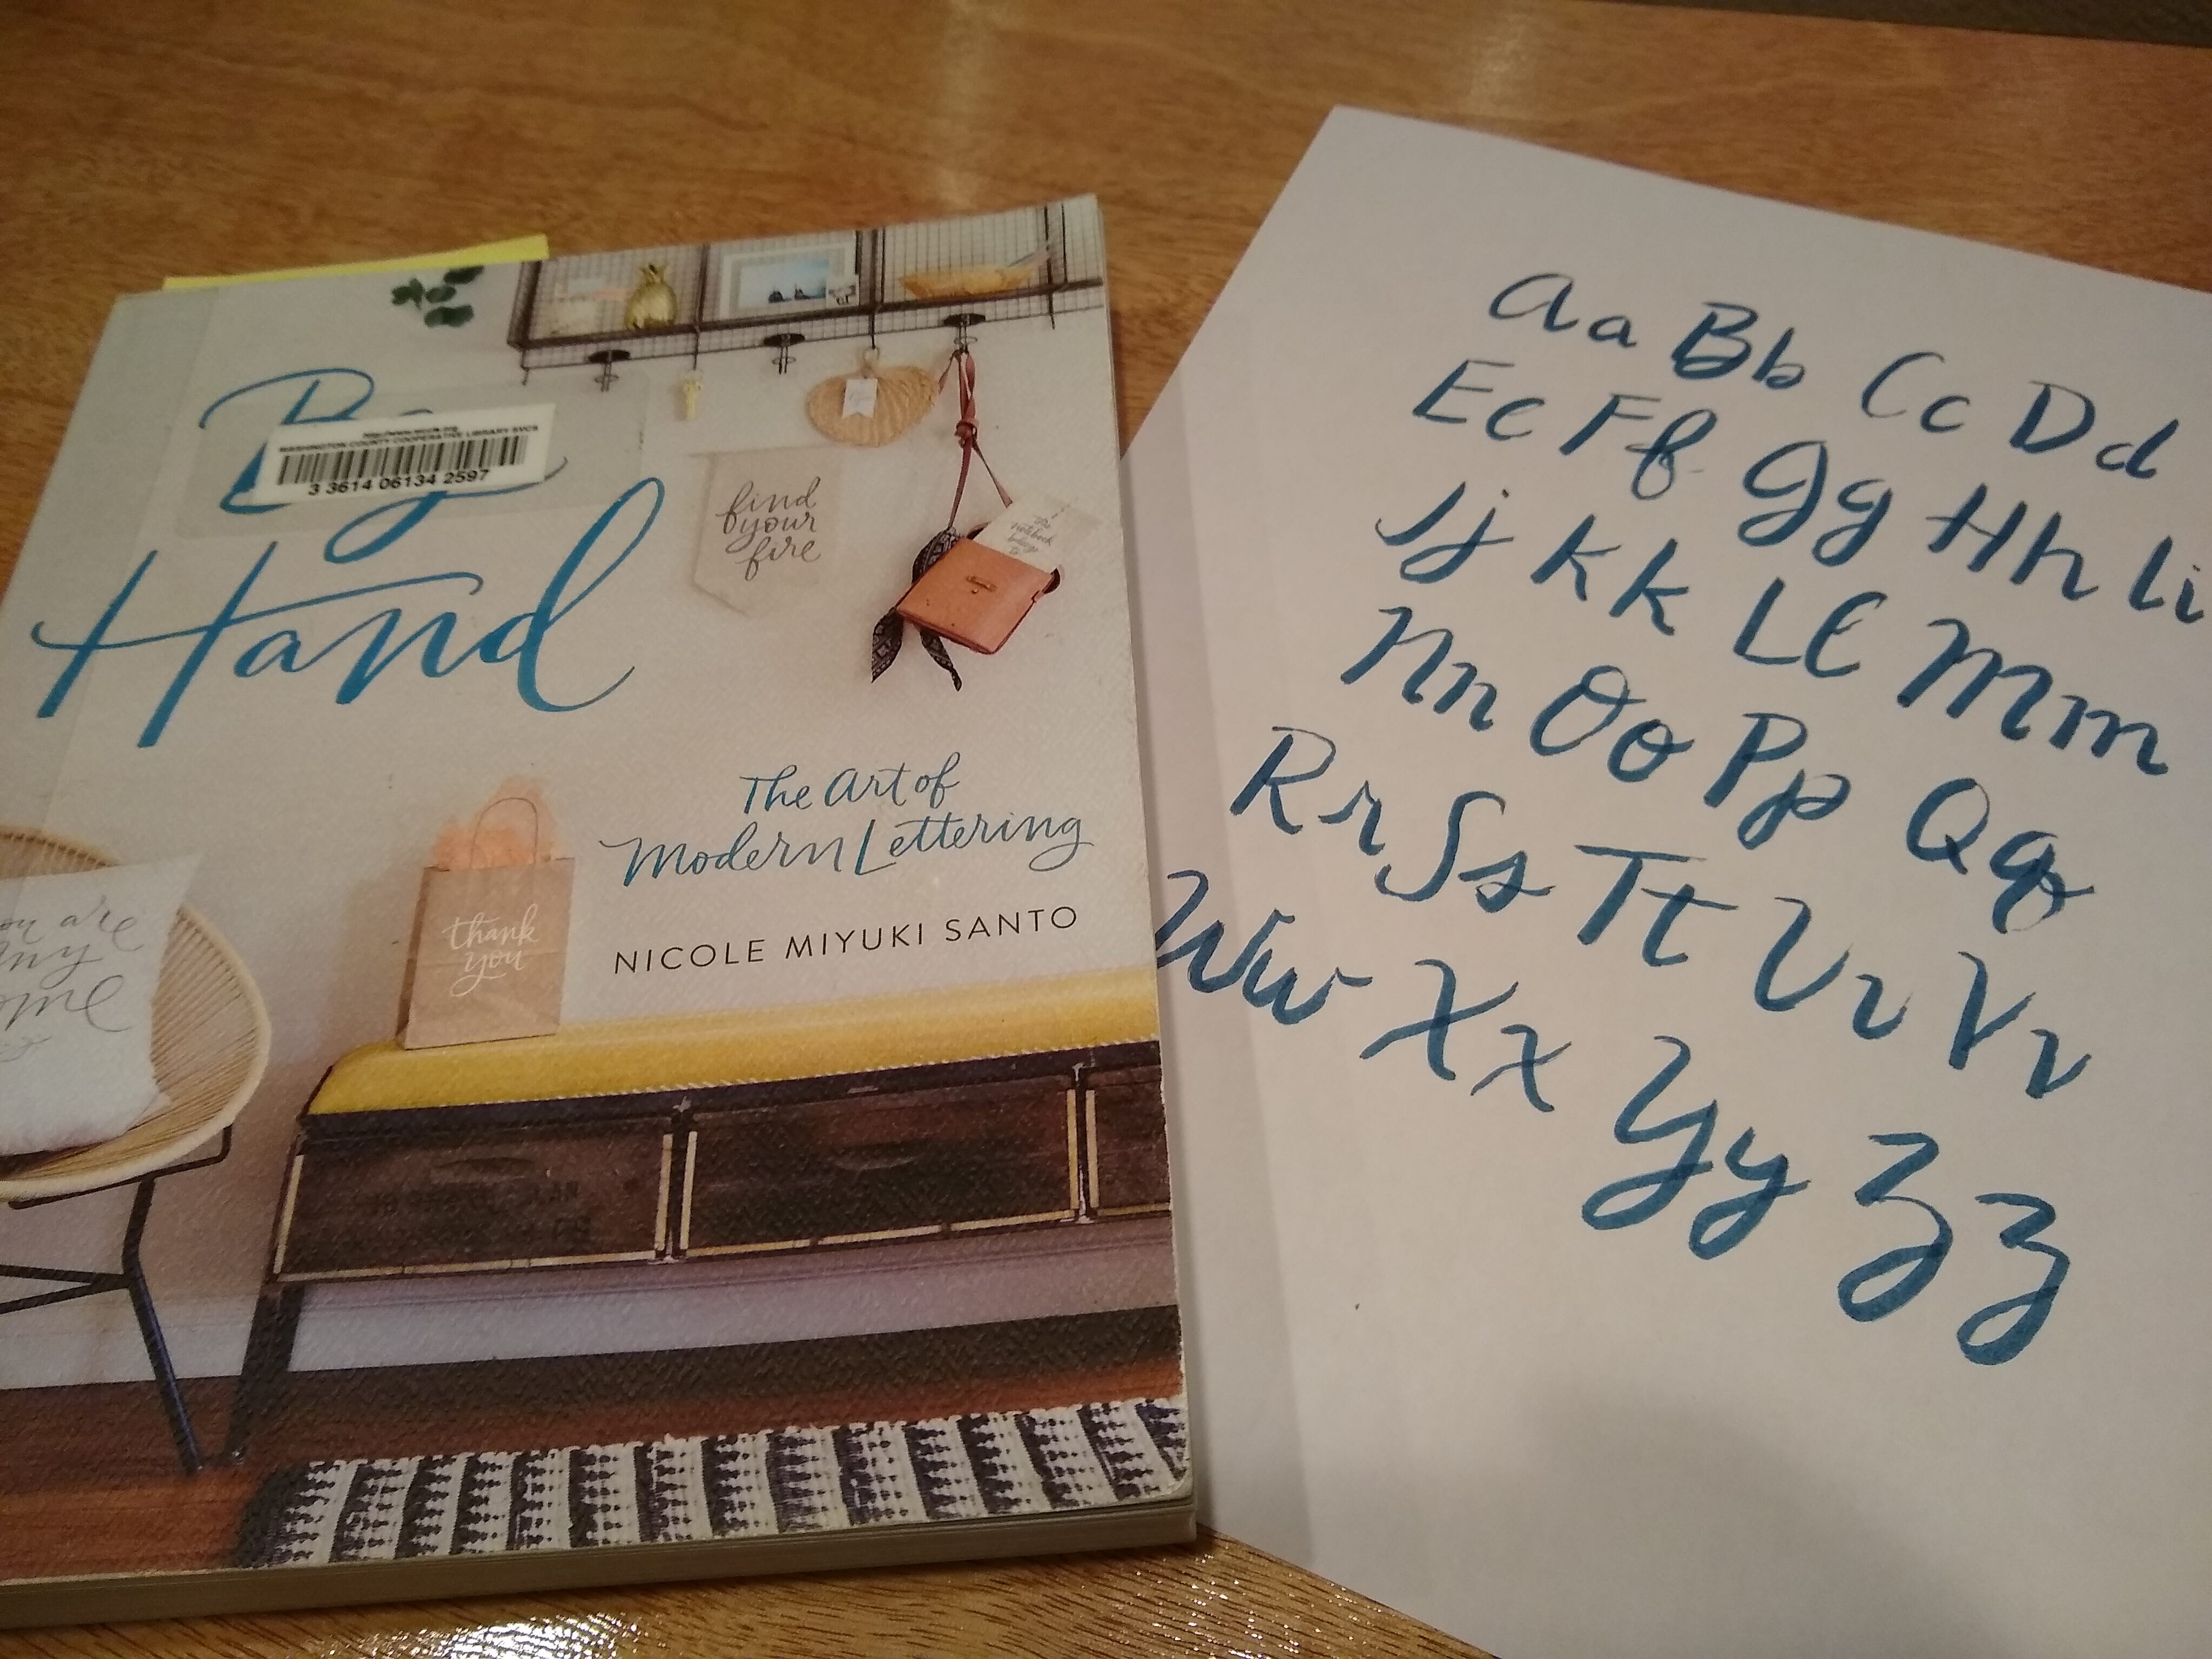 By
http://www.wccls.org
WASHINGTON COUNTY COOPERATIVE LIBRARY SVCS
3 3614 06134 2597
Hand
find
your
fire
The Art of
Modern Lettering
NICOLE MIYUKI SANTO
thank
you
you are
my
ome
Aa Bb Cc Dd
Ee Ff Gg Hh Ii
Jj Kk Ll Mm
Nn Oo Pp Qq
Rr Ss Tt Uu Vv
Ww Xx Yy Zz